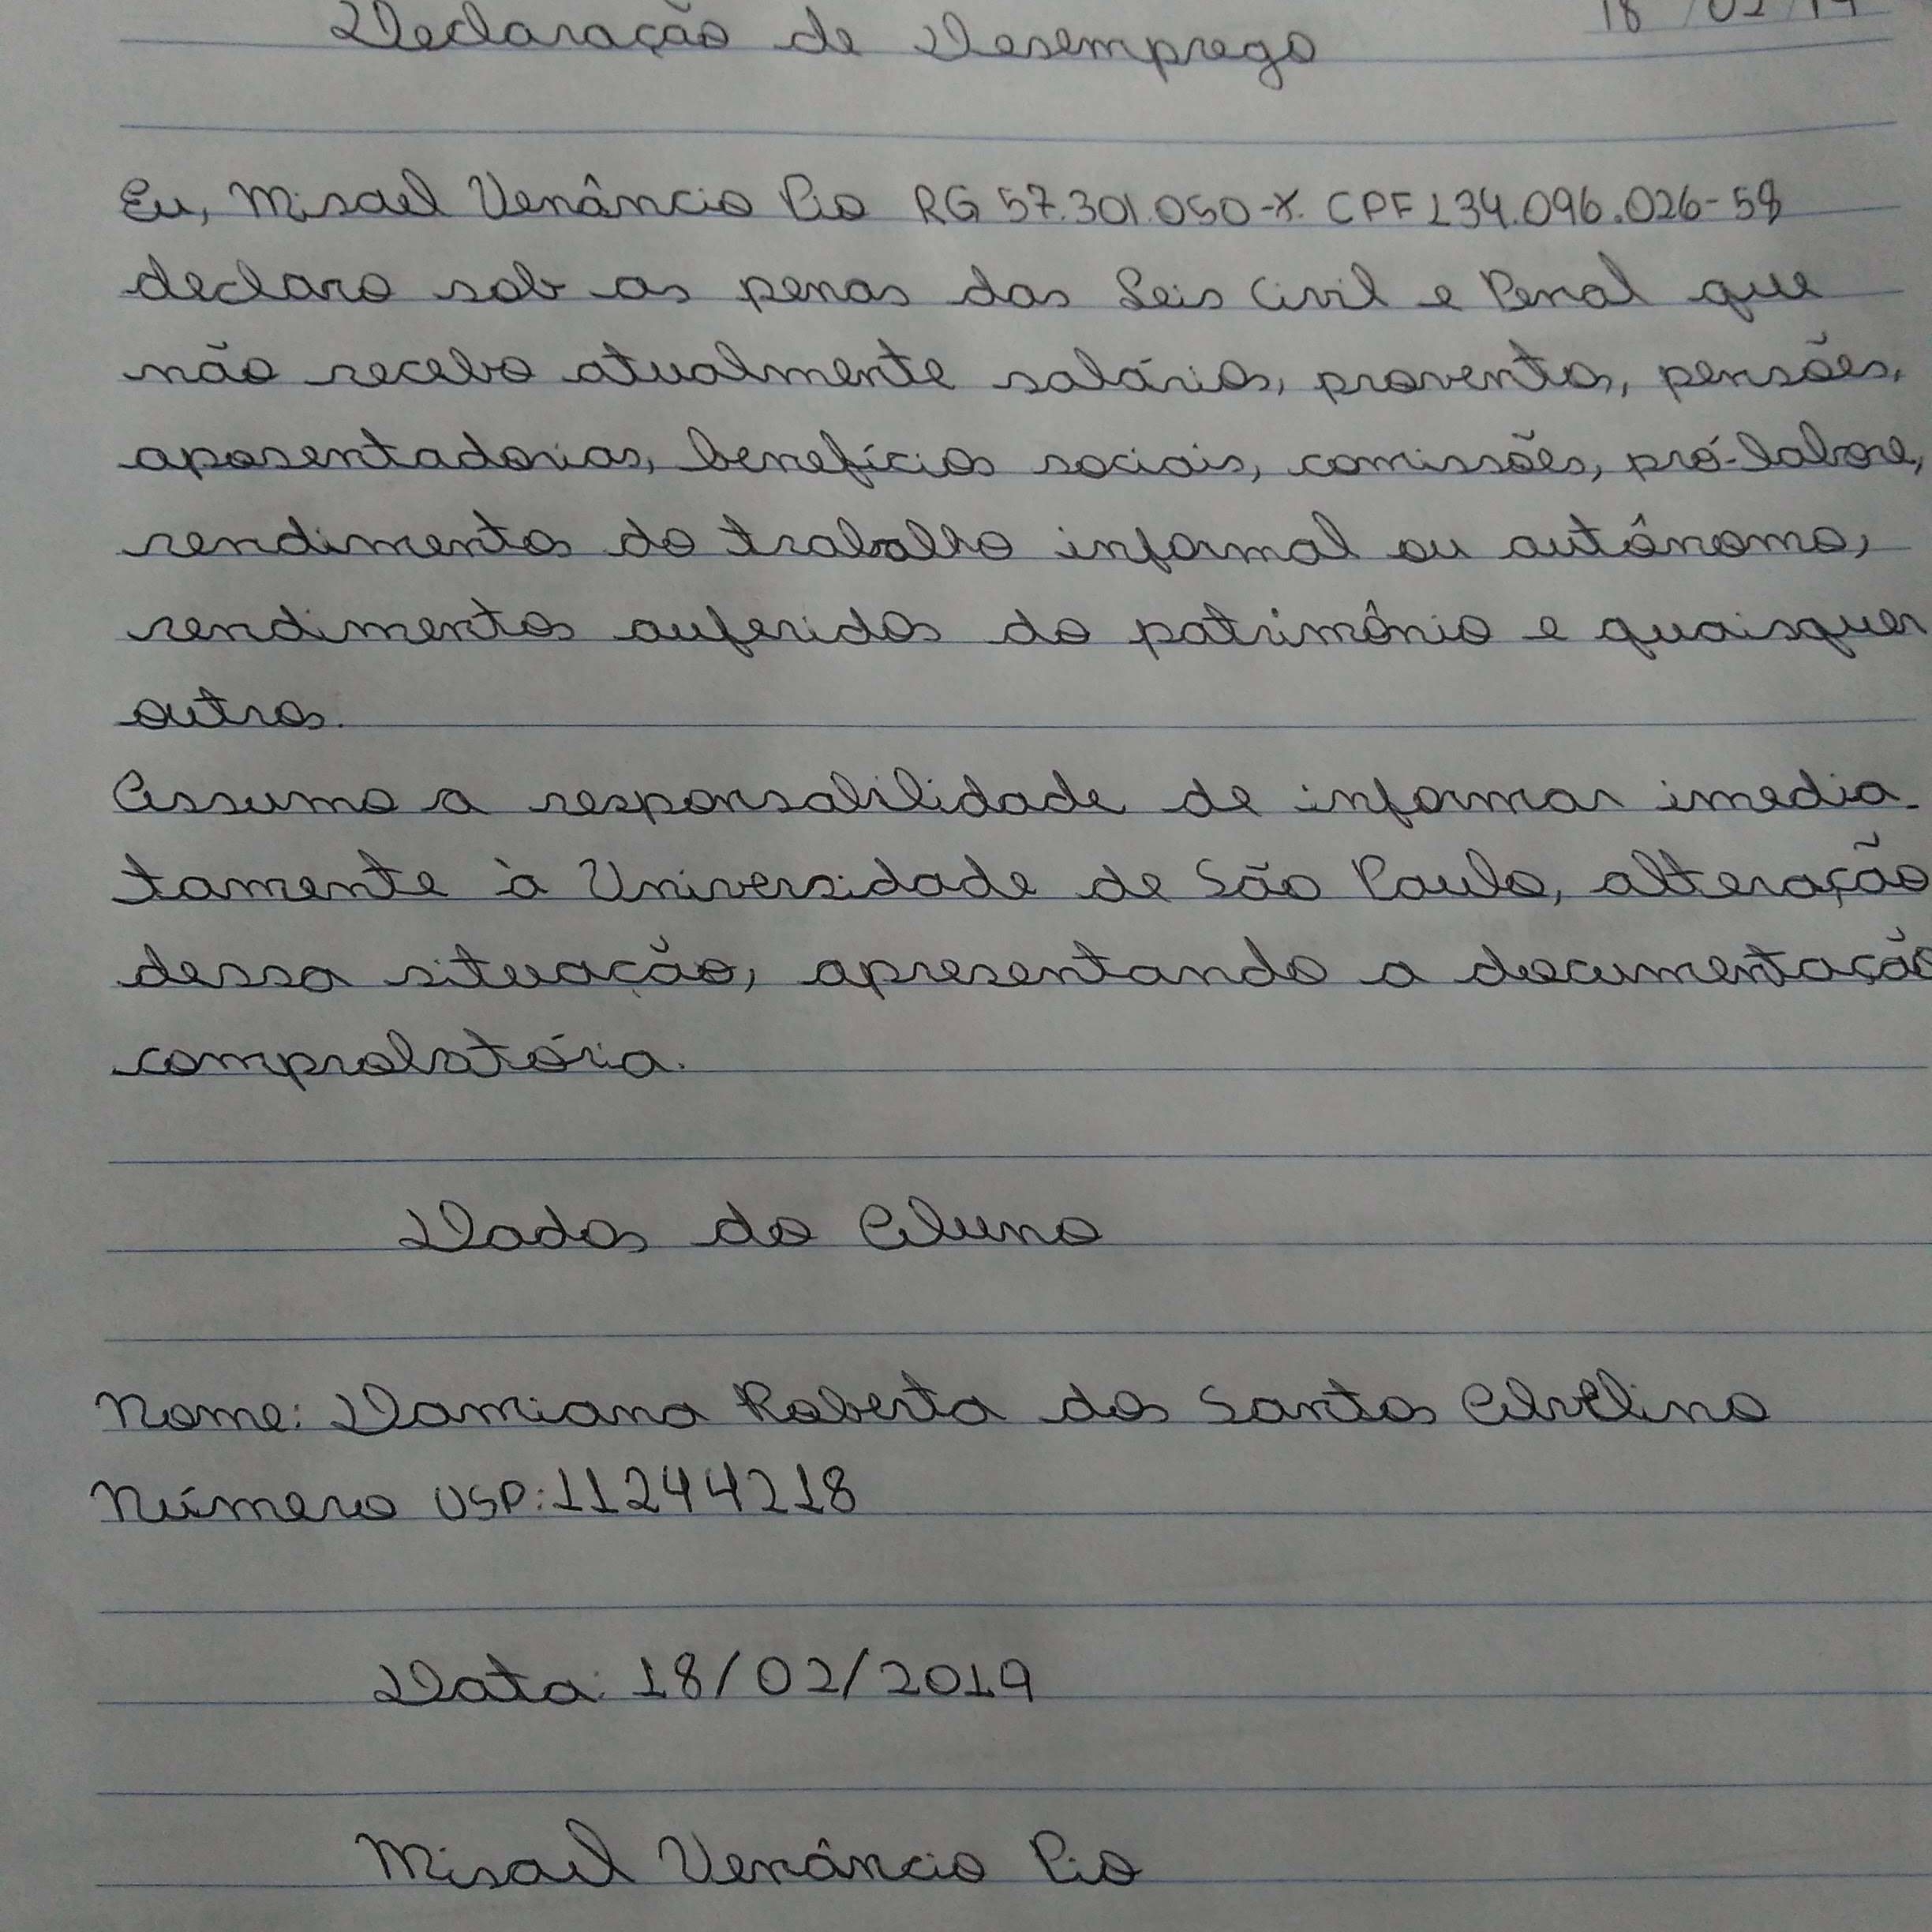 Declaração de Desemprego 18/02/19
Eu, Misael Venâncio Pio RG 57.301.050-X. CPF 134.096.026-58
declaro sob as penas das Leis Civil e Penal que
não recebo atualmente salários, proventos, pensões,
aposentadorias, benefícios sociais, comissões, pró-labore,
rendimentos do trabalho informal ou autônomo,
rendimentos auferidos do patrimônio e quaisquer
outros.
Assumo a responsabilidade de informar imedia-
tamente à Universidade de São Paulo, alteração
dessa situação, apresentando a documentação
comprobatória.
Dados do Aluno
Nome: Damiana Roberta dos Santos Avelino
Número USP: 11244218
Data: 18/02/2019
Misael Venâncio Pio